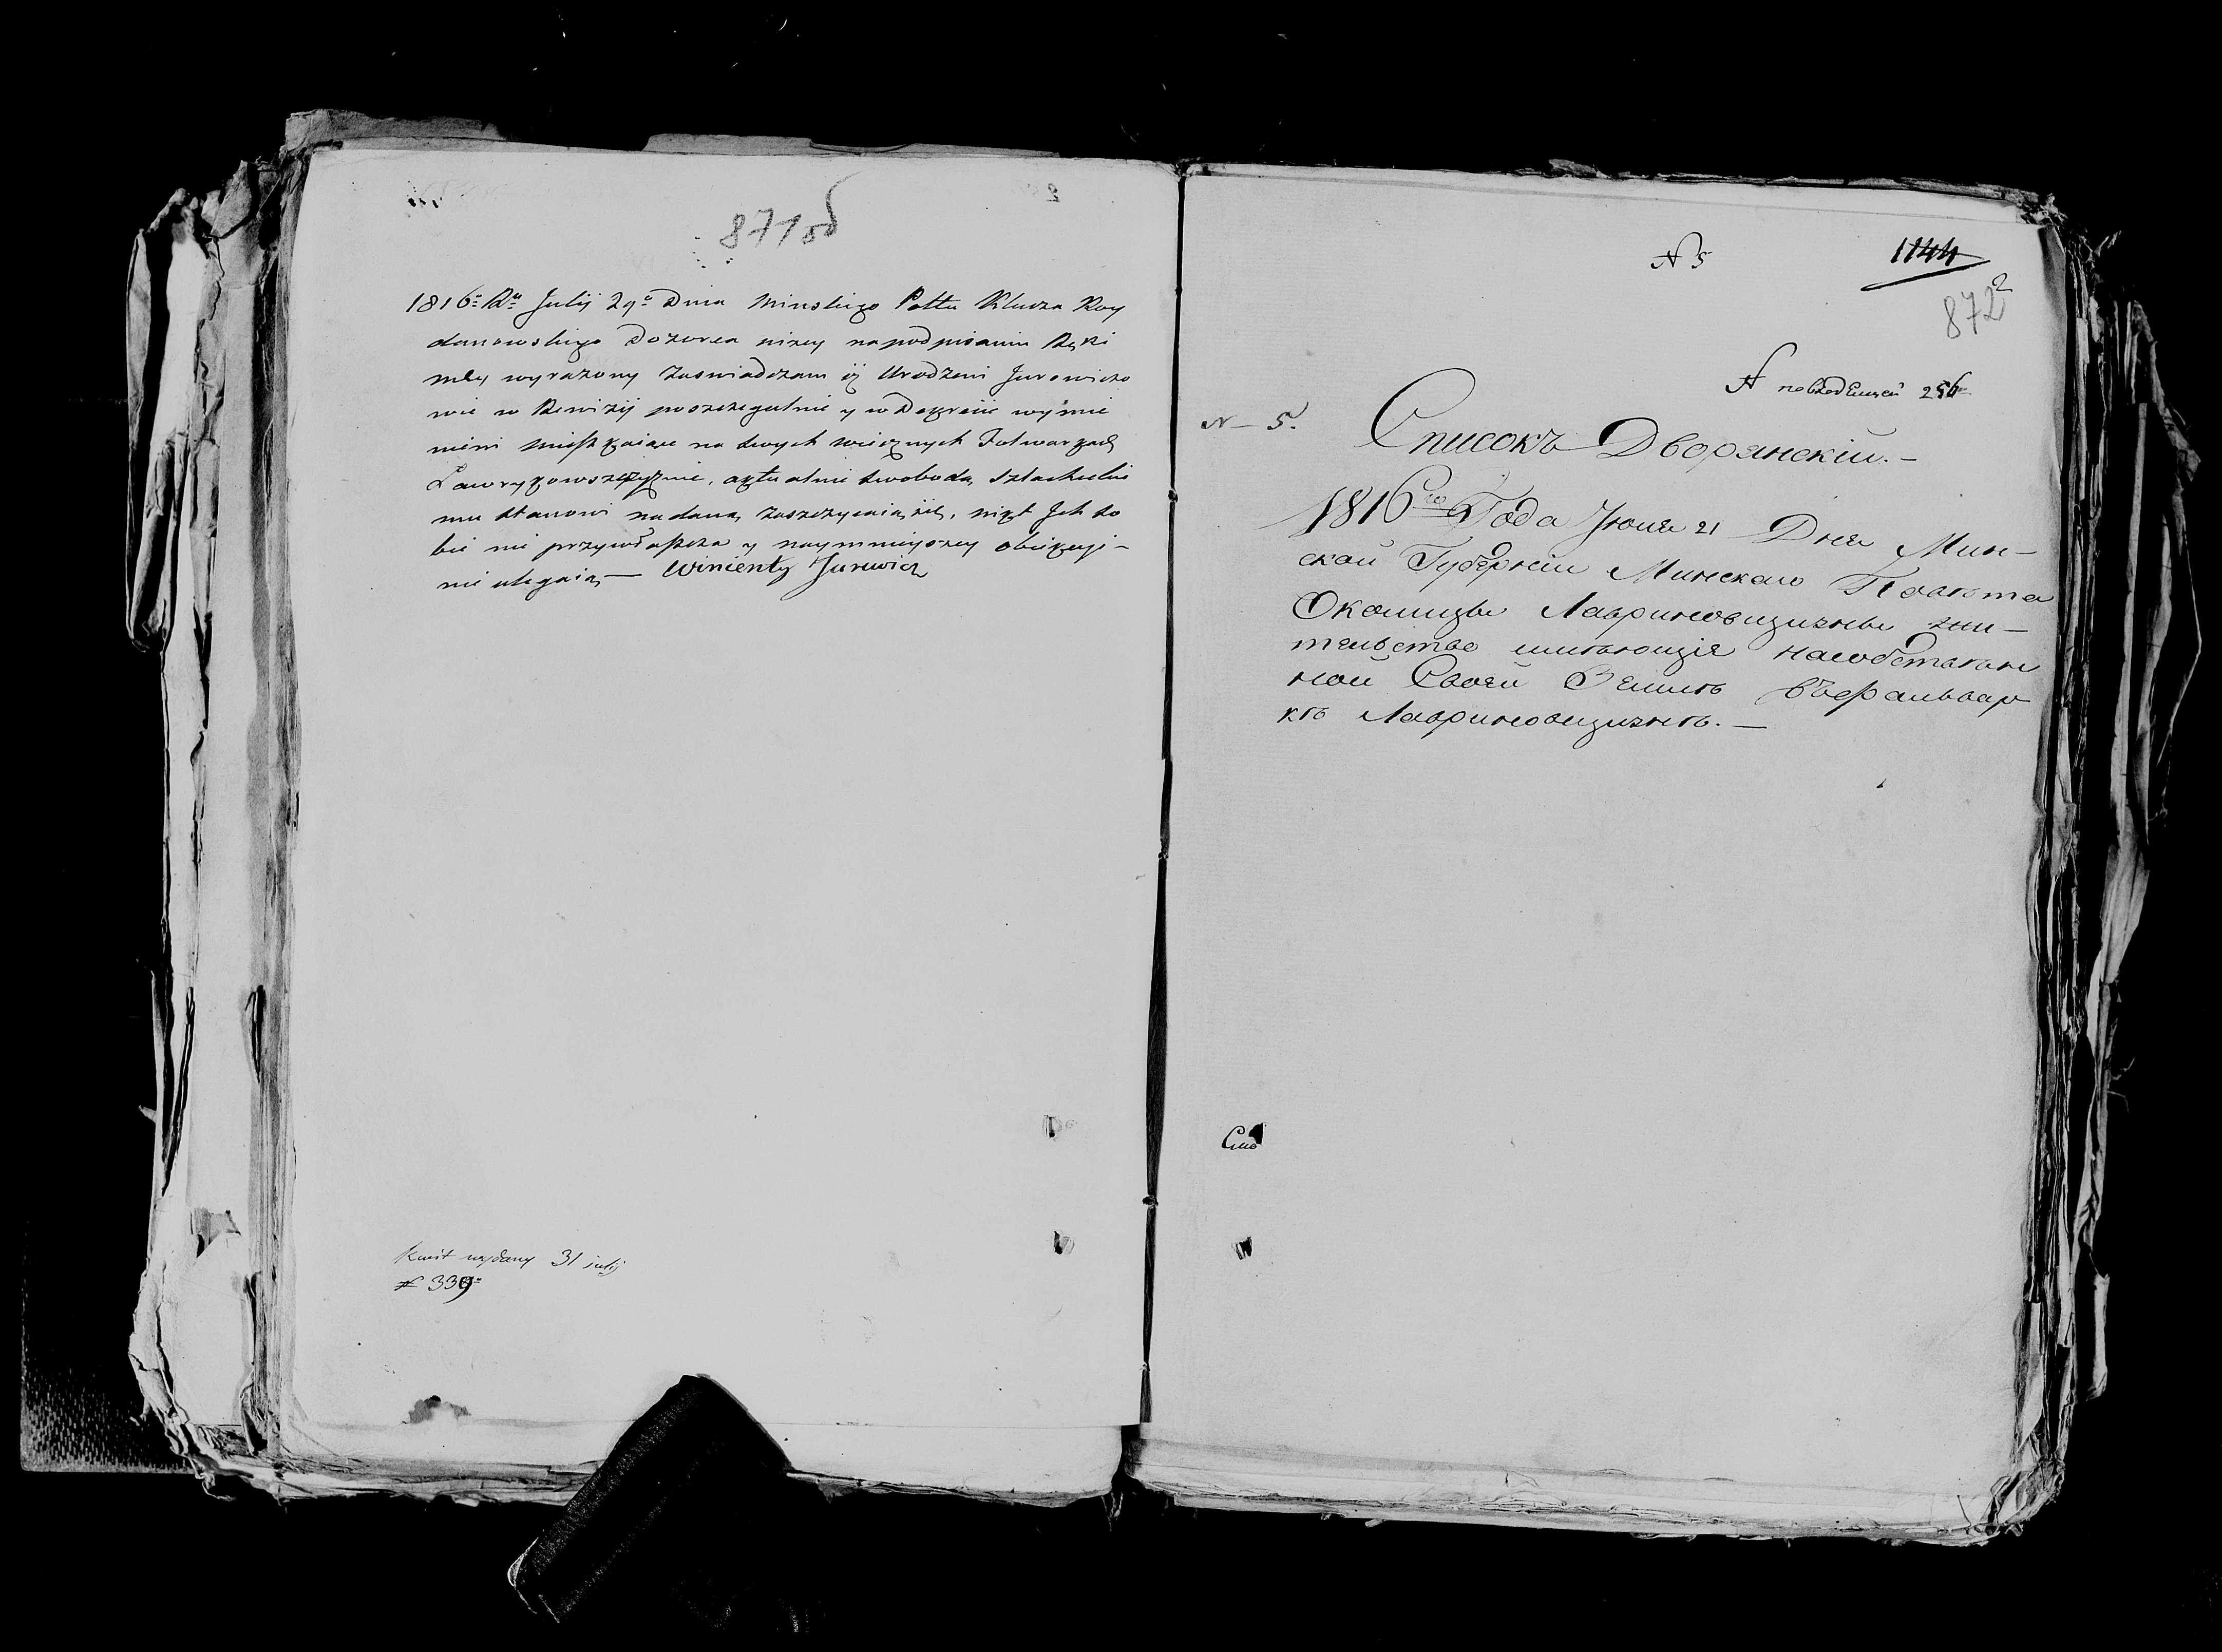 871 об
1816º Rº Julij 29º Dnia Minskigo Pottu Klucza Koy
danowskigo Dozorca niżey na podpisaniu Ręki
mey wyrażony zaswiadczam iż Urodzeni Jurewiczo
wie w Rewizij poszczegulnie y w Dekrecie wymie
nieni mieszkaiące na swych wiecznych Folwarkach
Ławrynowszczyznie, aktualnie swobodą Szlacheckie
mu stanowi nadaną zaszczycaią się, nikt Ich so
bie nie przywłaszcza y naymnieyszey obiekcyi
nie ulegaią — Wincenty Jurewicz
Kwit wydany 31 julij
№ 339º
№ 5
1144
872
2
№ по входящей 256
N – 5.
Списокъ Дворянскій. –
1816го Года Июня 21 Дня Мин–
ской Губерніи Минскаго Повѣта
Околицы Лавриновщизны жи–
тельство имѣющія насобствен
ной Своей Землѣ въфальвар
кѣ Лавриновщизнѣ. —